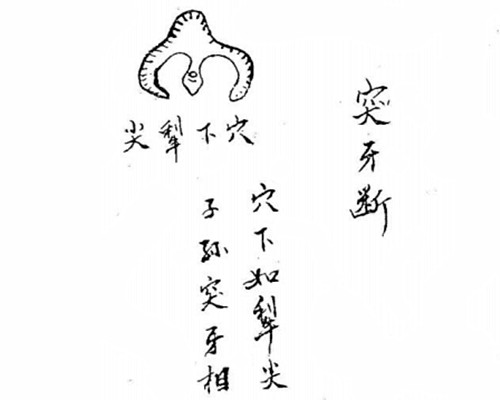 突牙断
穴下如犁尖
子孙突牙相
穴下犁尖